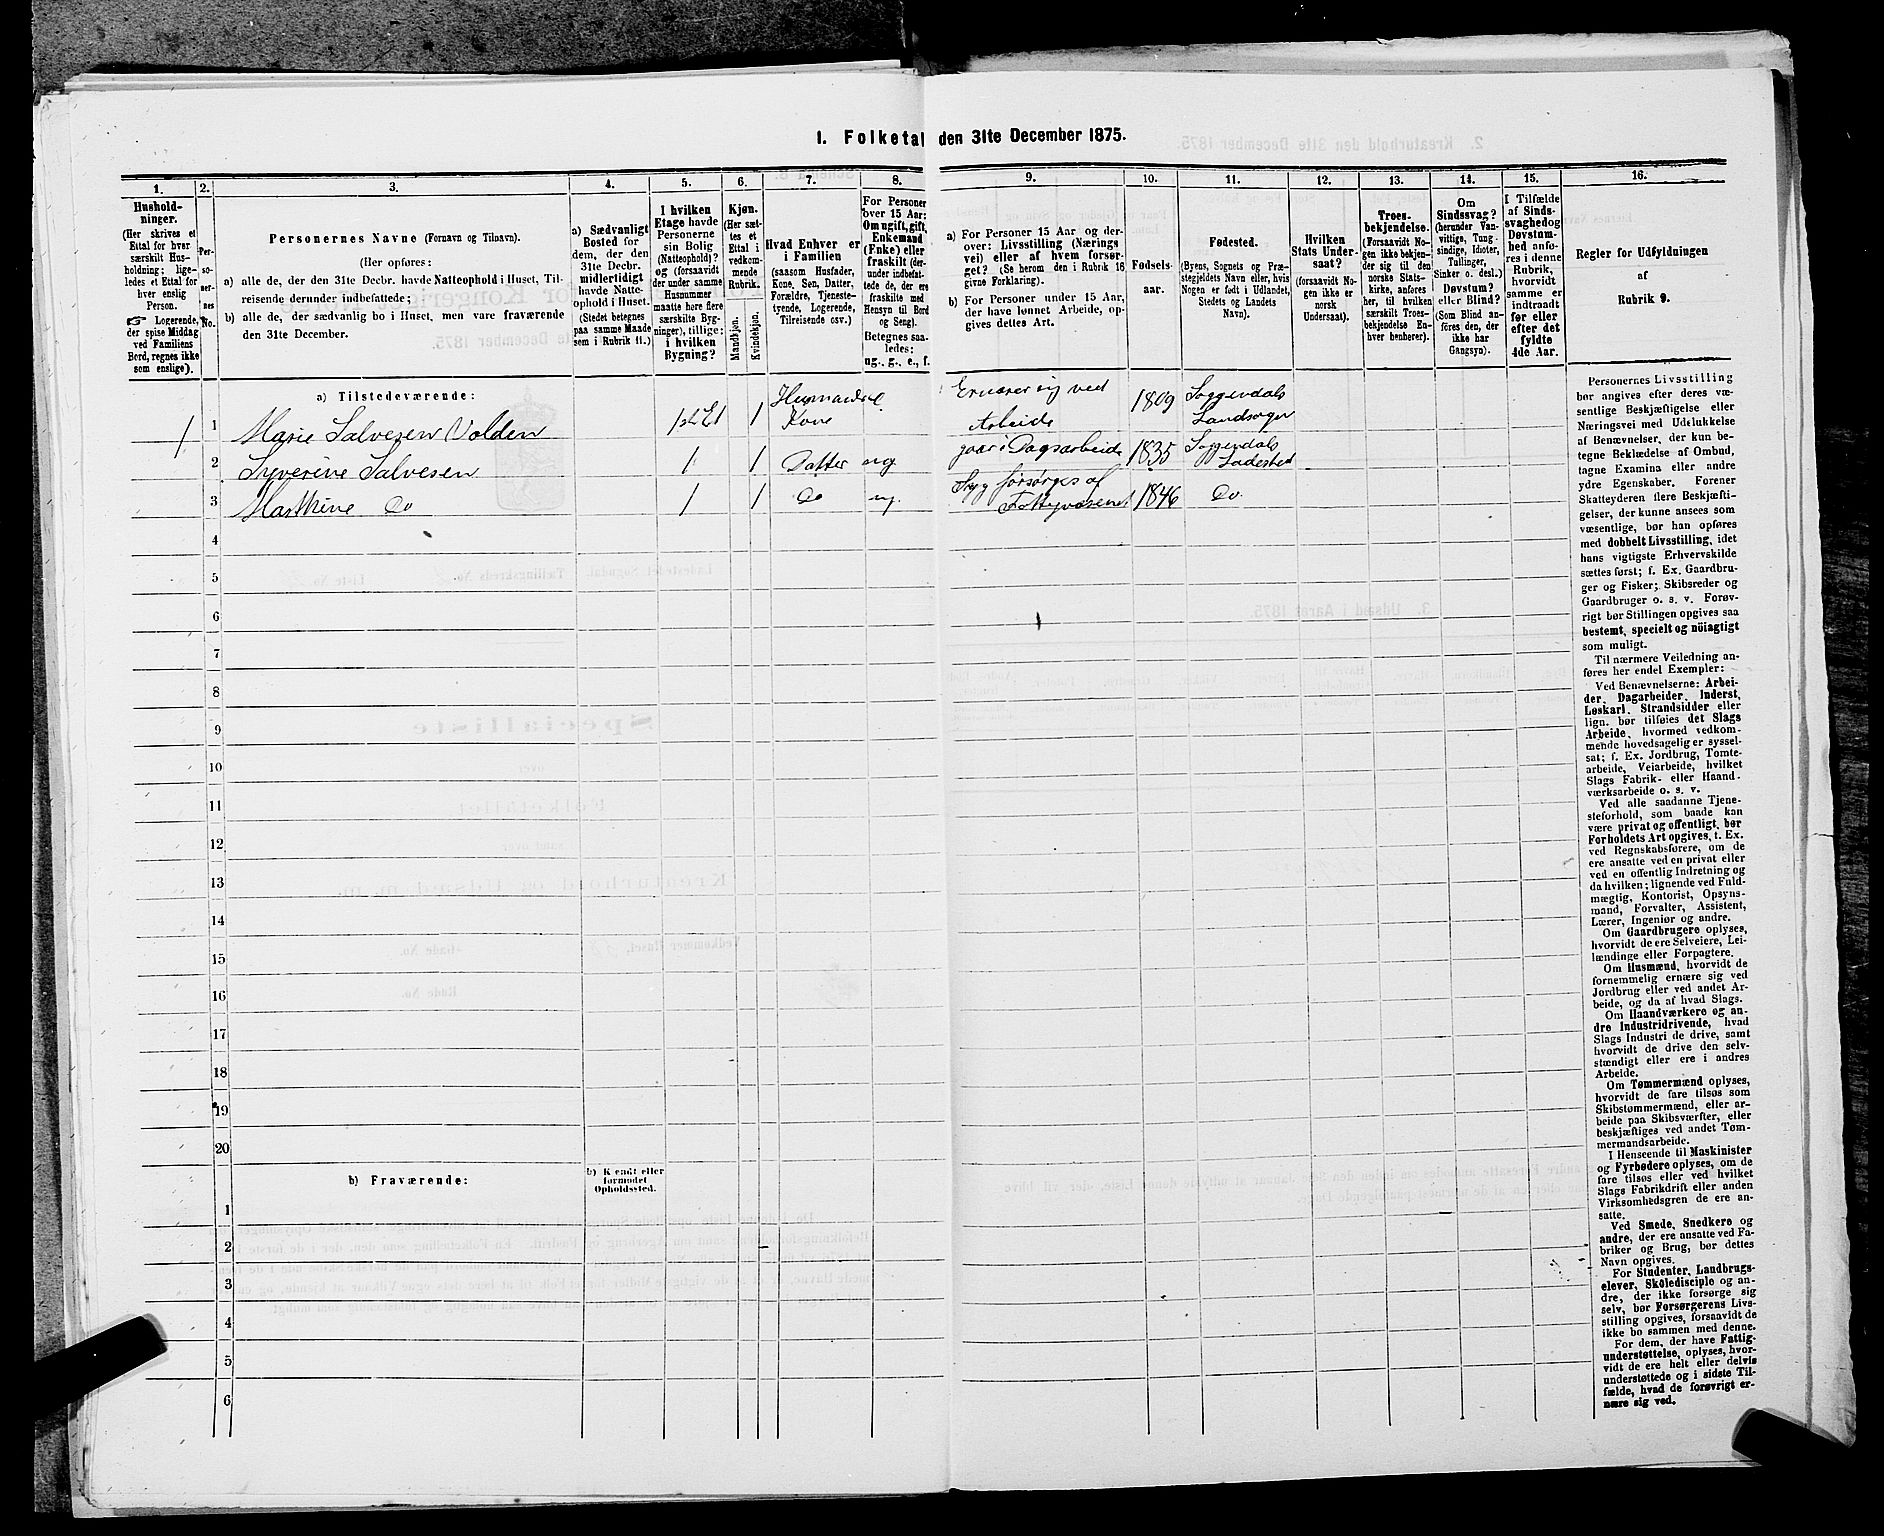 1. Folketal den 31te December 1875.
1.
2.
3.
4.
5.
6.
7.
8.
9.
10.
11.
12.
13.
14.
15.
16.
Hushold-
ninger.
(Her skrives et
Ettal for hver
særskilt Hus-
holdning; lige-
ledes et Ettal for
hver enslig
Person.
☞ Logerende,
der spise Middag
ved Familiens
Bord, regnes ikke
som enslige).
Per-
so-
ner-
nes
No.
Personernes Navne (Fornavn og Tilnavn).
(Her opføres:
a) alle de, der den 31te Decbr. havde Natteophold i Huset, Til-
reisende derunder indbefattede;
b) alle de, der sædvanlig bo i Huset, men vare fraværende
den 31te December.
a) Sædvanligt
Bosted for
dem, der den
31te Decbr.
midlertidigt
havde Natte-
ophold i Huset.
(Stedet betegnes
paa samme Maade
som i Rubrik 11.)
I hvilken
Etage havde
Personerne
sin Bolig
(Natteophold)?
og (forsaavidt
der under samme
Husnummer
maatte høre flere
særskilte Byg-
ninger), tillige:
i hvilken
Bygning?
Kjøn.
(Her sæt-
tes et
Ettal i
vedkom-
mende
Rubrik.
Mandkjøn.
Kvindekjøn.
Hvad Enhver er
i Familien
(saasom Husfader,
Kone, Søn, Datter,
Forældre, Tjeneste-
tyende, Logerende,
Tilreisende osv.)
For Personer
over 15 Aar:
Om ugift, gift,
Enkemand
(Enke) eller
fraskilt (der-
under indbefat-
tede de, der ere
fraskilte med
Hensyn til Bord
og Seng).
Betegnes saa-
ledes:
ug., g., e., f.
a) For Personer 15 Aar og der-
over: Livsstilling (Nærings
vei) eller af hvem forsør-
get? (Se herom den i Rubrik 16
givne Forklaring).
b) For Personer under 15 Aar,
der have lønnet Arbeide, op-
gives dettes Art.
Fødsels-
aar.
Fødested.
(Byens, Sognets og Præ-
stegjeldets Navn eller, hvis
Nogen er født i Udlandet,
Stedets og Landets
Navn).
Hvilken
Stats Under-
saat?
(forsaavidt No-
gen ikke er
norsk
Undersaat).
Troes-
bekjendelse.
(Forsaavidt No-
gen ikke bekjen-
der sig til den
norske Stats-
kirke, anføres
her, til hvilken
særskilt Troes-
bekjendelse En-
hver henhører).
Om
Sindssvag?
(herunder Van-
vittige, Tung-
sindige, Idioter,
Tullinger,
Sinker o. desl.)
Døvstum?
eller Blind?
(Som Blind an-
føres den, der
ikke har
Gangsyn).
I Tilfælde
af Sinds-
svaghed og
Døvstum-
hed anfø-
res i denne
Rubrik,
hvorvidt
samme er
indtraadt
før eller
efter det
fyldte
4de Aar.
Regler for Udfyldningen
af
Rubrik 9.
a) Tilstedeværende:
1 1 Marie Salvesen Valden 1ste Et 1 Husmands Kone Ernærer sig ved Arbeide 1809 Soggendals Landsogn
2 Syverine Salvesen 1 1 Datter ug gaar i Dagsarbeide 1835 Soggendals Ladested
3 Marthine Do 1 1 Do ug. Syg forsørges af Fattigvæsenet 1846 Do.
4
5
6
7
8
9
10
11
12
13
14
15
16
17
18
19
20
b) Fraværende:
b) Kjendt eller
formodet
Opholdssted.
1
2
3
4
5
6
Personernes Livsstilling
bør angives efter deres væ-
sentlige Beskjæftigelse eller
Næringsvei med Udelukkelse
af Benævnelser, der kun be-
tegne Beklædelse af Ombud,
tagne Examina eller andre
ydre Egenskaber. Forener
Skatteyderen flere Beskjæfti-
gelser, der kunne ansees som
væsentlige, bør han opføres
med dobbelt Livsstilling, idet
hans vigtigste Erhvervskilde
sættes først; f. Ex. Gaardbru-
ger og Fisker; Skibsreder og
Gaardbruger o. s. v. Forøv-
rigt bør Stillingen opgives saa
bestemt, specielt og nöiagtigt
som muligt.
Til nærmere Veiledning an-
føres her endel Exempler:
Ved Benævnelserne: Arbei-
der, Dagarbeider, Inderst,
Løskarl, Strandsidder eller
lign. bør tilføies det Slags
Arbeide, hvormed vedkom-
mende hovedsagelig er syssel-
sat; f. Ex. Jordbrug, Tomte-
arbeide, Veiarbeide, hvilket
Slags Fabrik- eller Haand-
værksarbeide o. s. v.
Ved alle saadanne Tjene-
steforhold, som baade kan
være privat og offentligt, bør
Forholdets Art opgives, t. Ex.
ved Regnskabsførere, om de
ere ansatte ved en privat eller
ved en offentlig Indretning og
da hvilken; lignende ved Fuld-
mægtig, Kontorist, Opsyns-
mand, Forvalter, Assistent,
Lærer, Ingeniør og andre.
Om Gaardbrugere oplyses,
hvorvidt de ere Selveiere, Lei-
lændinge eller Forpagtere.
Om Husmænd, hvorvidt de
fornemmelig ernære sig ved
Jordbrug eller ved andet Ar-
beide, og da af hvad Slags.
Om Haandværkere og an-
dre Industridrivende, hvad
Slags Industri de drive, samt
hvorvidt de drive den selv-
stændigt eller ere i andres
Arbeide.
Om Tømmermænd oplyses,
hvorvidt de fare tilsøs som
Skibstømmermænd, eller ar-
beide paa Skibsværfter, eller
beskjæftiges ved andet Tøm-
mermandsarbeide.
I Henseende til Maskinister
og Fyrbødere oplyses, om de
fare tilsøs eller ved hvilket
Slags Fabrikdrift eller anden
Virksomhedsgren de ere an-
satte.
Ved Smede, Snedkere og
andre, der ere ansatte ved Fa-
briker og Brug, bør dettes
Navn opgives.
For Studenter, Landbrugs-
elever, Skoledisciple og an-
dre, der ikke forsørge sig
selv, bør Forsørgerens Livs-
stilling opgives, forsaavidt de
ikke bo sammen med denne.
For dem, der have Fattig-
understøttelse, oplyses, hvor-
vidt de ere helt eller delvis
understøttede og i sidste Til-
fælde, hvad de forøvrigt er-
nære sig ved.